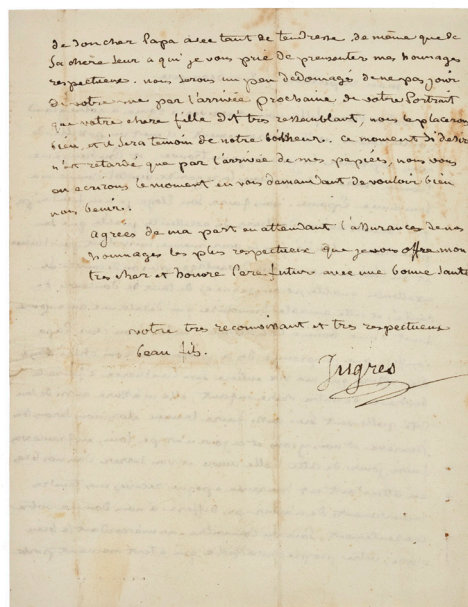 de son cher papa avec tant de tendresse, de même que de
sa chère seur a qui je vous prie de presenter mes homages
respectueux. nous serons un peu dedomagés de ne pas jouir
de votre vue par l'arrivée prochaine de votre Portrait
que votre chere fille dit tres ressemblant, nous le placerons
bien, et il sera temoin de notre bohheur. ce moment si désiré
n'est retardé que par l'arrivée de mes papiés, nous vous
en ecrirons le moment en vous demandant de vouloir bien
nous benir.
agrées de ma part en attendant l'assurances de mes
hommages les plus respectueux que je vous offre mon
tres cher et honore Pere futur avec une bonne santé
votre tres reconoissant et tres respectueux
beau fils.
Ingres